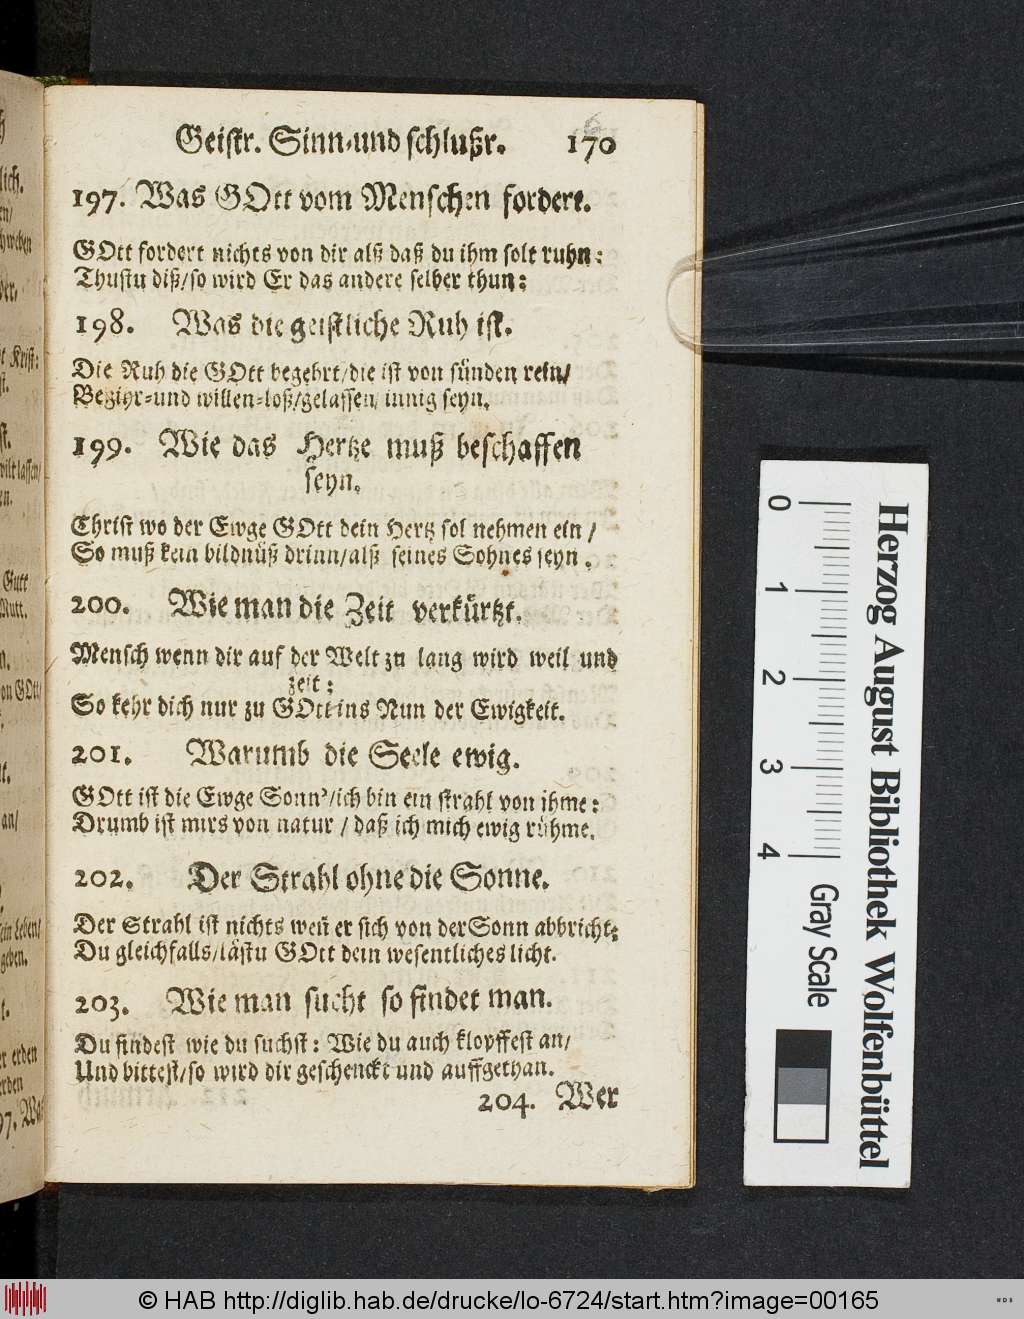 Geistr. Sinn-und schlußr. 170
197. Was GOtt vom Menschen fordert.
GOtt fordert nichts von dir alß daß du ihm solt ruhn:
Thustu diß/so wird Er das andere selber thun:
198. Was die geistliche Ruh ist.
Die Ruh die GOtt begehrt/die ist von sünden rein/
Begiyr-und willen-loß/gelassen, innig seyn.
199. Wie das Hertze muß beschaffen
seyn.
Christ wo der Ewge GOtt dein Hertz sol nehmen ein /
So muß kein bildnüß drinn/alß seines Sohnes seyn.
200. Wie man die Zeit verkürtzt.
Mensch wenn dir auf der Welt zu lang wird weil und
zeit:
So kehr dich nur zu GOtt ins Nun der Ewigkeit.
201. Warumb die Seele ewig.
GOtt ist die Ewge Sonn'/ich bin ein strahl von ihme:
Drumb ist mirs von natur / daß ich mich ewig rühme.
202. Der Strahl ohne die Sonne.
Der Strahl ist nichts weñ er sich von der Sonn abbricht:
Du gleichfalls/lästu GOtt dein wesentliches licht.
203. Wie man sucht so findet man.
Du findest wie du suchst: Wie du auch klopffest an/
Und bittest/so wird dir geschenckt und auffgethan.
204. Wer
lich.
Krist:
wilt lassen/
Gutt
Mutt.
von GOtt/
an/
sein Leben/
geben.
er erden
erden
97. Was
0
1
2
3
4
Gray Scale
Herzog August Bibliothek Wolfenbüttel
© HAB http://diglib.hab.de/drucke/lo-6724/start.htm?image=00165
WDB